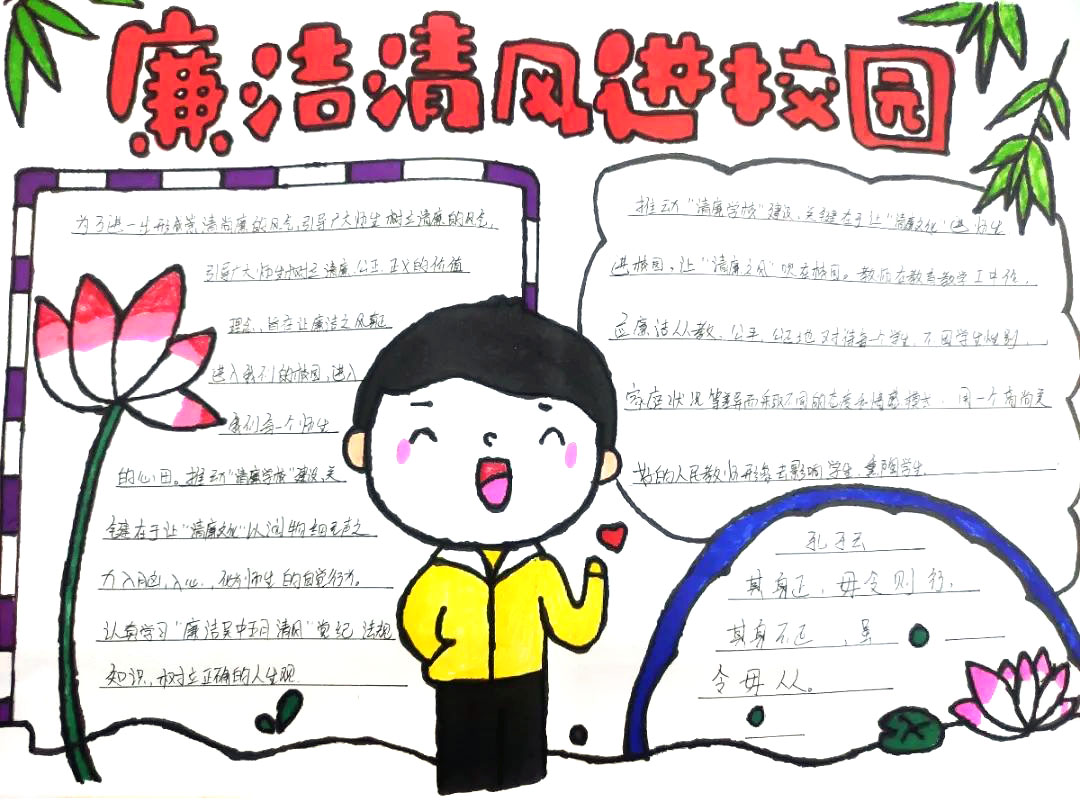 廉洁清风进校园
为了进一步形成崇清尚廉的风气,引导广大师生树立清廉的风气,
引导广大师生树立清廉、公正、正义的价值
理念,旨在让廉洁之风真正
进入我们的校园,进入
我们每一个师生
的心田。推动"清廉学校"建设,关
键在于让"清廉文化"以润物细无声之
力入脑,入心,化为师生的自觉行为。
认真学习"廉洁吴中玉月清风"党纪 法规
知识,树立正确的人生观
推动"清廉学校"建设,关键在于让"清廉文化"进师生
进校园,让"清廉之风"吹在校园。教师在教育教学工中作,
应廉洁从教、公平、公正地对待每一个学生,不因学生性别、
家庭状况等差异而采取不同的态度和情感模式,用一个高尚美
的人民教师形象去影响学生,熏陶学生
孔子云
其身正,毋令则行,
其身不正,虽
令毋从。